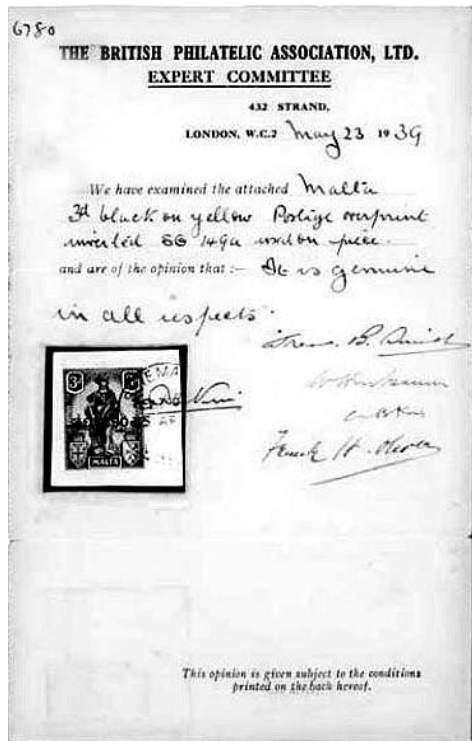 6780
THE BRITISH PHILATELIC ASSOCIATION, LTD.
EXPERT COMMITTEE
432 STRAND,
LONDON, W.C.2 May 23 1939
We have examined the attached Malta
3d black on yellow Postage overprint
inverted SG 149a used on piece.
and are of the opinion that :— It is genuine
in all respects.
Thos. B.
3d
MALTA
Frank H.
This opinion is given subject to the conditions
printed on the back hereof.